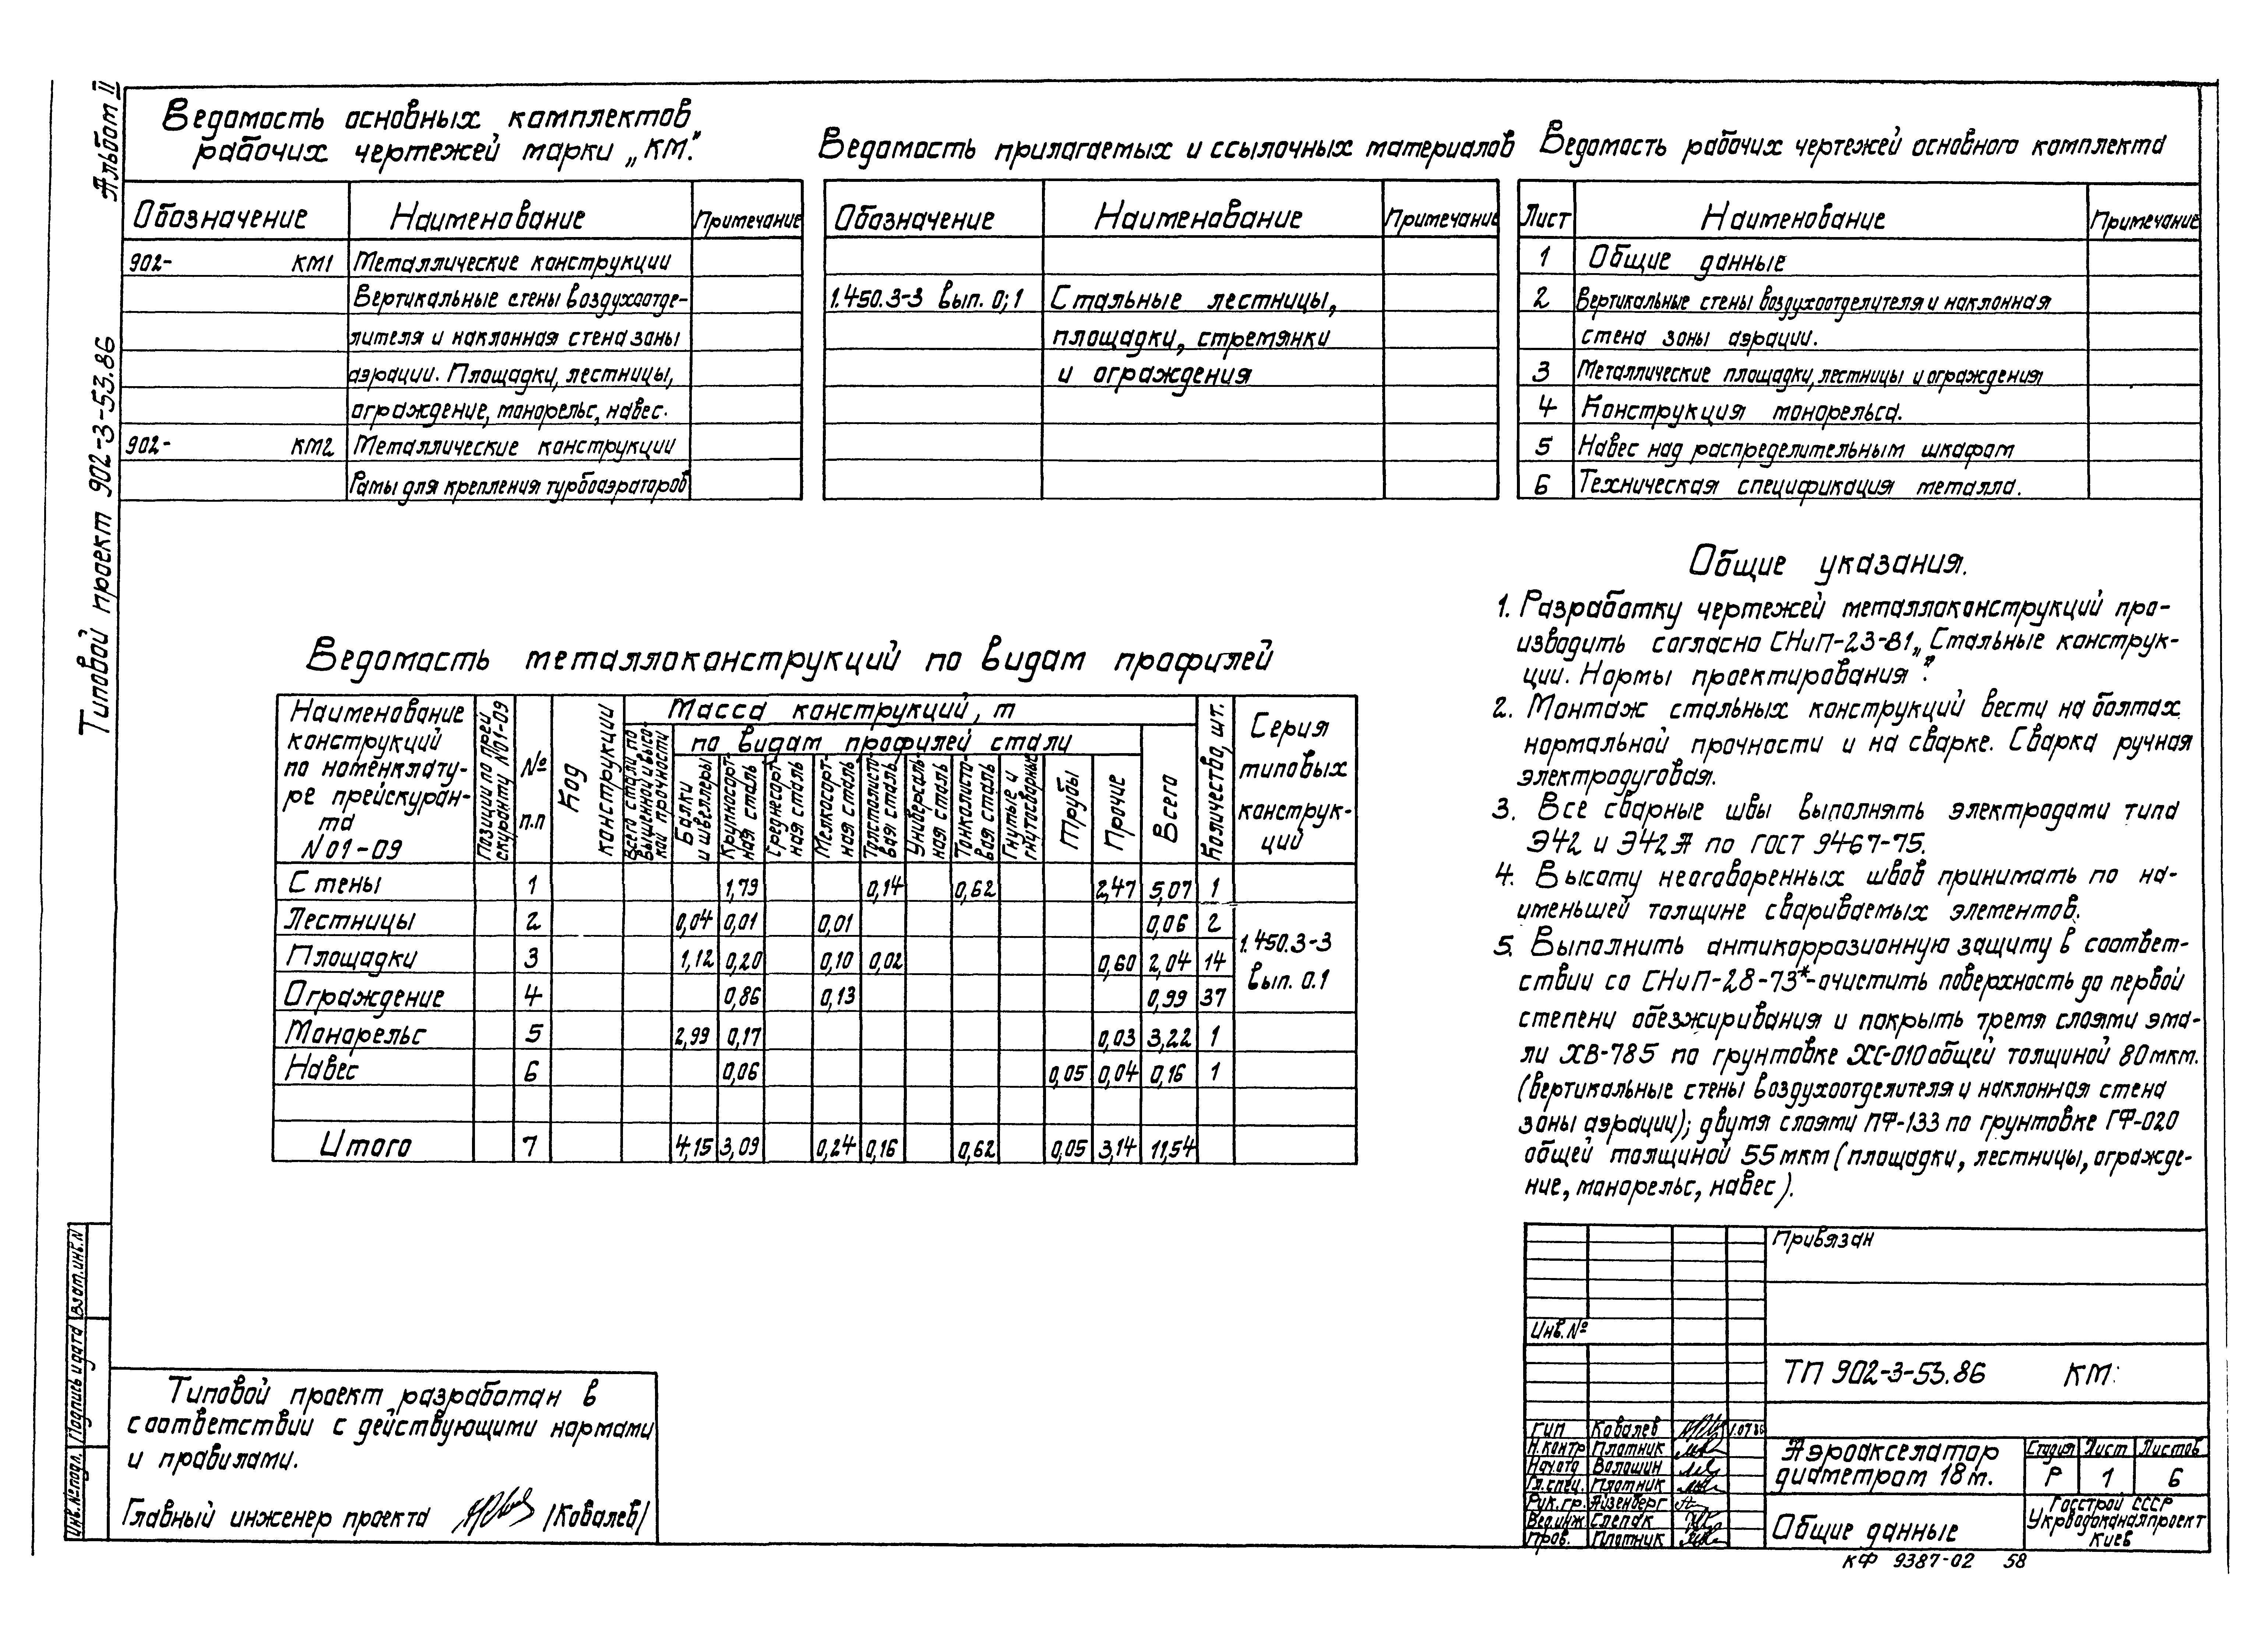 Альбом II
Типовой проект 902-3-53.86
Ведомость основных комплектов
рабочих чертежей марки „КМ."
Обозначение Наименование Примечание
902- КМ1 Металлические конструкции
Вертикальные стены воздухоотде-
лителя и наклонная стена зоны
аэрации. Площадки, лестницы,
ограждение, монорельс, навес.
902- КМ2 Металлические конструкции
Рамы для крепления турбоаэраторов
Ведомость прилагаемых и ссылочных материалов
Обозначение Наименование Примечание
1.450.3-3 вып. 0;1 Стальные лестницы,
площадки, стремянки
и ограждения
Ведомость рабочих чертежей основного комплекта
Лист Наименование Примечание
1 Общие данные
2 Вертикальные стены воздухоотделителя и наклонная
стена зоны аэрации.
3 Металлические площадки, лестницы и ограждения
4 Конструкция монорельса.
5 Навес над распределительным шкафом
6 Техническая спецификация металла.
Ведомость металлоконструкций по видам профилей
Наименование
конструкций
по номенклату-
ре прейскуран-
та
N01-09
Позиции по прей
скуранту N01-09
№
п.п
Код
конструкции
Масса конструкций, т
Всего стали по
вышенной и высо
кой прочности
по видам профилей стали
Балки
и швеллеры
Крупносорт-
ная сталь
Среднесорт-
ная сталь
Мелкосорт-
ная сталь
Толстолисто-
вая сталь
Универсаль-
ная сталь
Тонколисто-
вая сталь
Гнутые и
гнутосварные
Трубы
Прочие
Всего
Количество, шт.
Серия
типовых
конструк-
ций
Стены 1 1,79 0,14 0,62 2,47 5,07 1
Лестницы 2 0,04 0,01 0,01 0,06 2
Площадки 3 1,12 0,20 0,10 0,02 0,60 2,04 14
Ограждение 4 0,86 0,13 0,99 37
Монорельс 5 2,99 0,17 0,03 3,22 1
Навес 6 0,06 0,05 0,04 0,16 1
Итого 7 4,15 3,09 0,24 0,16 0,62 0,05 3,14 11,54
1.450.3-3
вып. 0.1
Общие указания.
1. Разработку чертежей металлоконструкций про-
изводить согласно СНиП-23-81 „Стальные конструк-
ции. Нормы проектирования".
2. Монтаж стальных конструкций вести на болтах
нормальной прочности и на сварке. Сварка ручная
электродуговая.
3. Все сварные швы выполнять электродами типа
Э42 и Э42А по ГОСТ 9467-75.
4. Высоту неоговоренных швов принимать по на-
именьшей толщине свариваемых элементов.
5. Выполнить антикоррозионную защиту в соответ-
ствии со СНиП-28-73*-очистить поверхность до первой
степени обезжиривания и покрыть тремя слоями эма-
ли ХВ-785 по грунтовке ХС-010 общей толщиной 80 мкм.
(вертикальные стены воздухоотделителя и наклонная стена
зоны аэрации); двумя слоями ПФ-133 по грунтовке ГФ-020
общей толщиной 55 мкм (площадки, лестницы, огражде-
ние, монорельс, навес).
Типовой проект разработан в
соответствии с действующими нормами
и правилами.
Главный инженер проекта /Ковалев/
Инв.№подл. Подпись и дата Взам.инв.N
Привязан
Инв.№
ТП 902-3-53.86 КМ
ГИП Ковалев
Н.контр Плотник
Нач.отд Волошин
Гл.спец. Плотник
Рук.гр. Айзенберг
Вед.инж. Слепак
Пров. Плотник
Аэроакселатор
диаметром 18 м.
Стадия Лист Листов
Р 1 6
Общие данные
Госстрой СССР
Укрводоканалпроект
Киев
КФ 9387-02 58